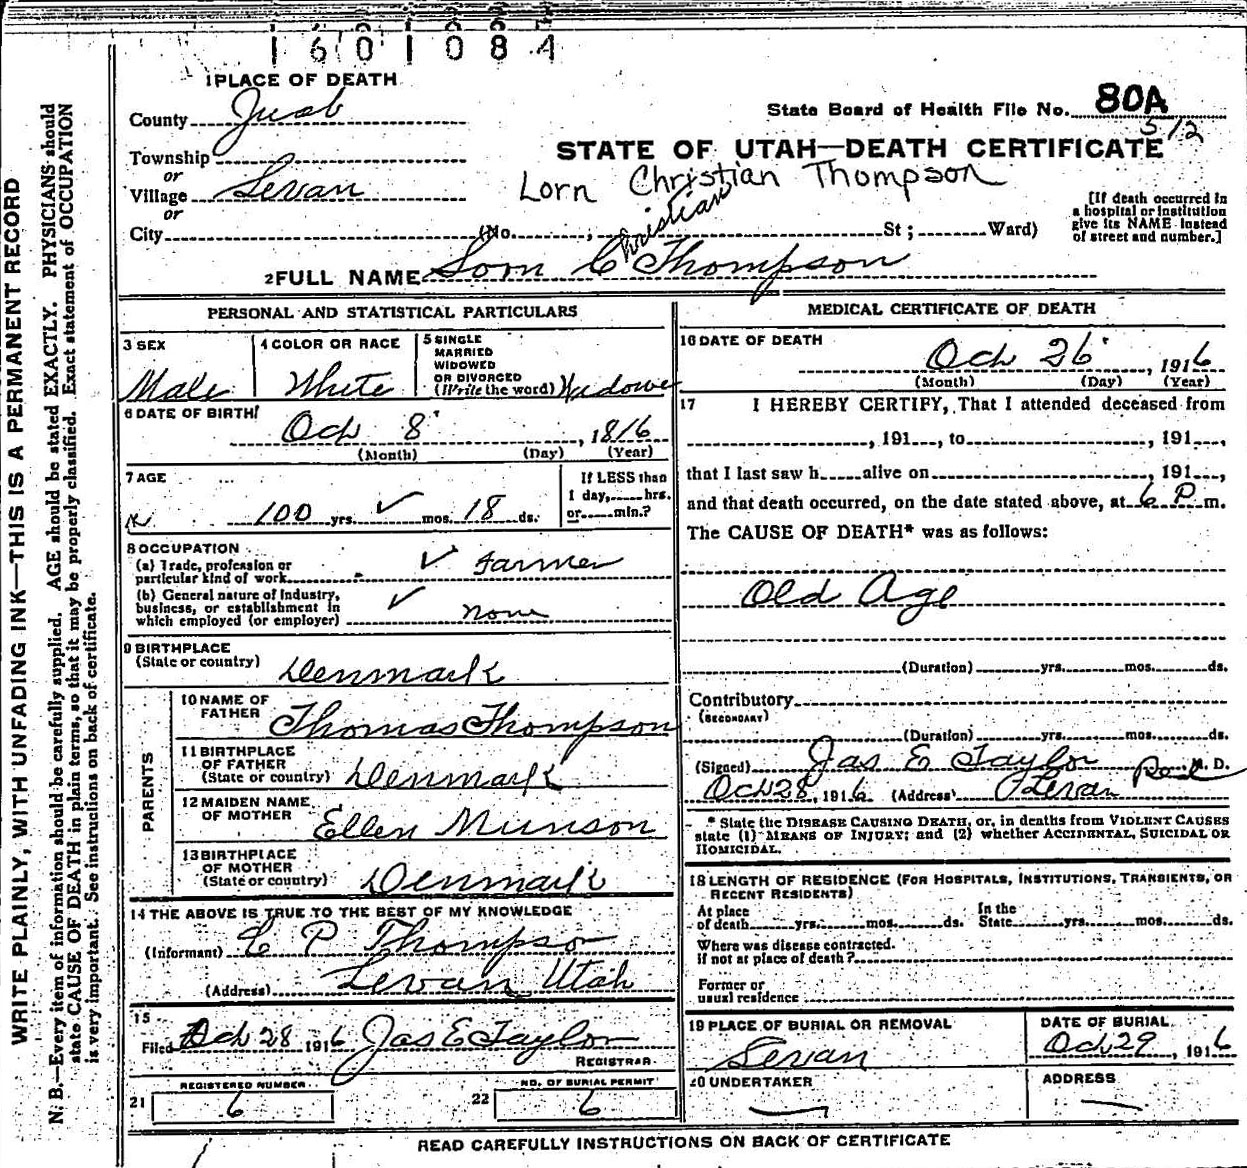 1601084
1 PLACE OF DEATH
County Juab
State Board of Health File No. 80A
5/2
Township
or
Village Levan
or
City (No. ; St; Ward)
STATE OF UTAH—DEATH CERTIFICATE
Lorn Christian Thompson
[If death occurred in
a hospital or institution
give its NAME instead
of street and number.]
Christian
2 FULL NAME Lorn C Thompson
PERSONAL AND STATISTICAL PARTICULARS
3 SEX
Male
4 COLOR OR RACE
White
5 SINGLE
MARRIED
WIDOWED
OR DIVORCED
(Write the word) Widowe
6 DATE OF BIRTH
Oct 8, 1816
(Month) (Day) (Year)
7 AGE
100 yrs. ✓ mos. 18 ds.
If LESS than
1 day, hrs.
or min.?
8 OCCUPATION
(a) Trade, profession or
particular kind of work ✓ Farmer
(b) General nature of Industry,
business, or establishment in
which employed (or employer) ✓ none
9 BIRTHPLACE
(State or country) Denmark
PARENTS
10 NAME OF
FATHER Thomas Thompson
11 BIRTHPLACE
OF FATHER
(State or country) Denmark
12 MAIDEN NAME
OF MOTHER Ellen Munson
13 BIRTHPLACE
OF MOTHER
(State or country) Denmark
14 THE ABOVE IS TRUE TO THE BEST OF MY KNOWLEDGE
(Informant) C P Thompso
(Address) Levan Utah
15
Filed Oct 28 1916 Jas E Taylor
REGISTRAR
REGISTERED NUMBER
21 6
NO. OF BURIAL PERMIT
22 6
MEDICAL CERTIFICATE OF DEATH
16 DATE OF DEATH
Oct 26, 1916
(Month) (Day) (Year)
17 I HEREBY CERTIFY, That I attended deceased from
, 191 , to , 191 ,
that I last saw h alive on , 191 ,
and that death occurred, on the date stated above, at 6 P m.
The CAUSE OF DEATH* was as follows:
Old Age
(Duration) yrs. mos. ds.
Contributory
(SECONDARY)
(Duration) yrs. mos. ds.
(Signed) Jas E Taylor M. D.
Oct 28, 1916 (Address) Levan
* State the DISEASE CAUSING DEATH, or, in deaths from VIOLENT CAUSES
state (1) MEANS OF INJURY; and (2) whether ACCIDENTAL, SUICIDAL OR
HOMICIDAL.
18 LENGTH OF RESIDENCE (FOR HOSPITALS, INSTITUTIONS, TRANSIENTS, OR
RECENT RESIDENTS)
At place
of death yrs. mos. ds.
In the
State yrs. mos. ds.
Where was disease contracted.
if not at place of death?
Former or
usual residence
19 PLACE OF BURIAL OR REMOVAL
Levan
DATE OF BURIAL
Oct 29, 1916
20 UNDERTAKER
ADDRESS
READ CAREFULLY INSTRUCTIONS ON BACK OF CERTIFICATE
WRITE PLAINLY, WITH UNFADING INK—THIS IS A PERMANENT RECORD
N. B.—Every item of information should be carefully supplied. AGE should be stated EXACTLY. PHYSICIANS should
state CAUSE OF DEATH in plain terms, so that it may be properly classified. Exact statement of OCCUPATION
is very important. See instructions on back of certificate.